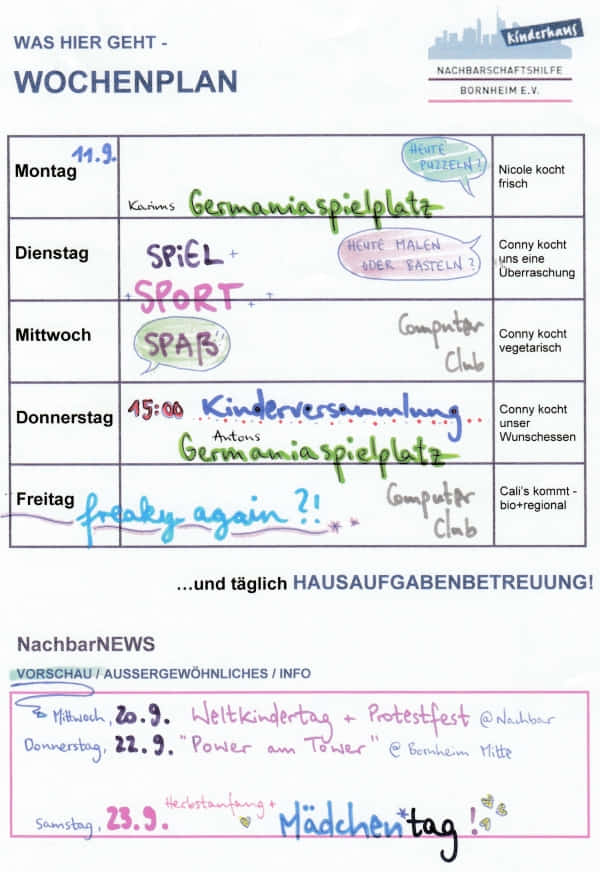 WAS HIER GEHT -
WOCHENPLAN
kinderhaus
NACHBARSCHAFTSHILFE
BORNHEIM E.V.
Montag 11.9.
HEUTE PUZZELN?
Karims Germaniaspielplatz
Nicole kocht
frisch
Dienstag
SPiEL +
+ SPORT + +
HEUTE MALEN
ODER BASTELN?
Conny kocht
uns eine
Überraschung
Mittwoch
SPAß
Computer
Club
Conny kocht
vegetarisch
Donnerstag
15:00 Kinderversammlung
Antons
Germaniaspielplatz
Conny kocht
unser
Wunschessen
Freitag
freaky again?!
Computer
Club
Cali's kommt -
bio+regional
...und täglich HAUSAUFGABENBETREUUNG!
NachbarNEWS
VORSCHAU / AUSSERGEWÖHNLICHES / INFO
Mittwoch, 20.9. Weltkindertag + Protestfest @Nachbar
Donnerstag, 22.9. "Power am Tower" @ Bornheim Mitte
Samstag, 23.9. Herbstanfang + Mädchen*tag!